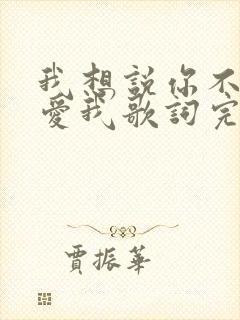 我想説你不
愛我歌詞完
賈振華